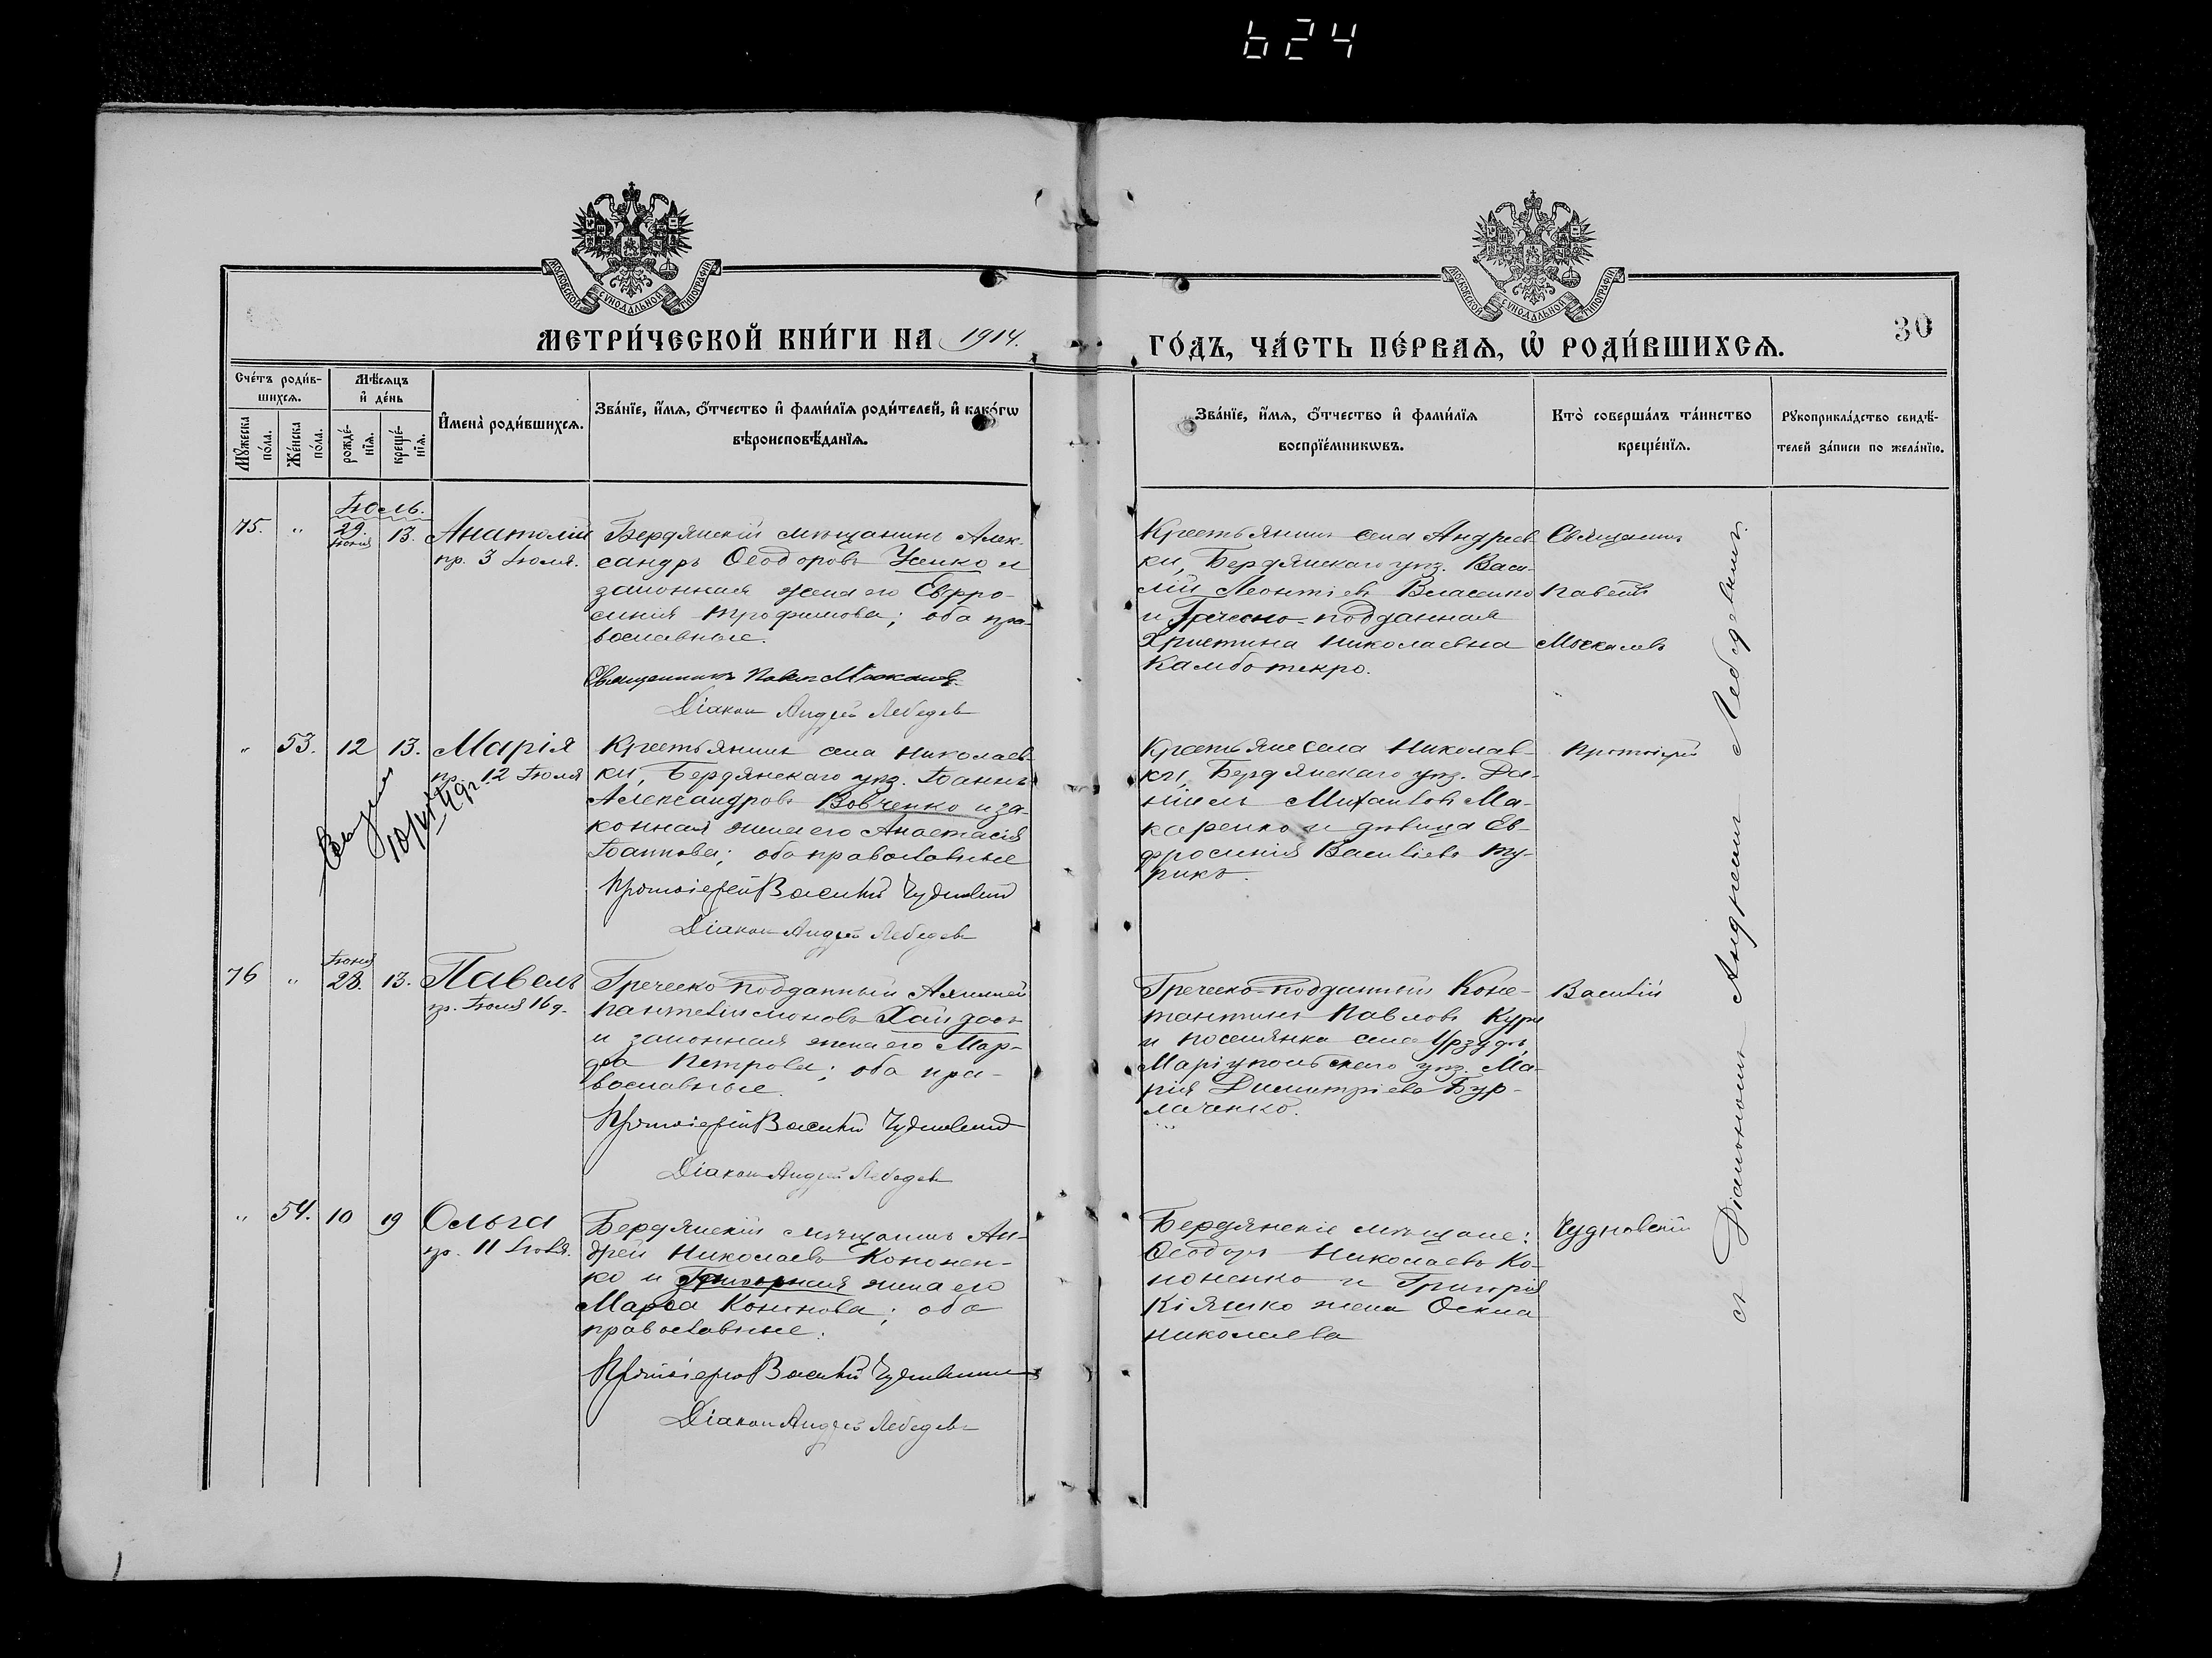 624
МОСКОВСКОЙ СѴНОДАЛЬНОЙ ТИПОГРАФІИ
МОСКОВСКОЙ СѴНОДАЛЬНОЙ ТИПОГРАФІИ
МЕТРИ́ЧЕСКОЙ КНИ́ГИ НА 1914.
ГО́ДЪ, ЧА́СТЬ ПЕ́РВАѦ, Ѡ҆ РОДИ́ВШИХСѦ.
30
Сче́тъ роди́в-
шихсѧ.
Мꙋ́жеска по́ла.
Же́нска по́ла.
Мѣ́сѧцъ
и҆ де́нь
рожде́-
нїѧ.
креще́-
нїѧ.
И҆мена̀ роди́вшихсѧ.
Зва́нїе, и҆́мѧ, ѻ҆́тчество и҆ фами́лїѧ роди́телей, и҆ како́гѡ
вѣроисповѣ́данїѧ.
Зва́нїе, и҆́мѧ, ѻ҆́тчество и҆ фами́лїѧ
воспрїе́мникѡвъ.
Кто̀ соверша́лъ та́инство
креще́нїѧ.
Рꙋкоприкла́дство свидѣ́-
телей за́писи по жела́нїю.
Іюль.
75. " 29 Іюня 13. Анатолій
пр. 3 Іюля.
Бердянскій мѣщанинъ Алек-
сандръ Ѳеодоровъ Усенко и
законная жена его Евфро-
синія Трофимова; оба пра-
вославные.
Священникъ Павелъ Москалевъ
Діаконъ Андрей Лебедевъ
Крестьянинъ села Андреев-
ки, Бердянскаго уѣз. Васи-
лій Леонтіевъ Власенко
и Греческо-подданная
Христина Николаевна
Камботекро.
Священникъ
Павелъ
Москалевъ
" 53. 12 13. Марія
пр. 12 Іюля
Крестьянинъ села Николаев-
ки, Бердянскаго уѣз. Іоаннъ
Александровъ Вовченко и за-
конная жена его Анастасія
Іоаннова; оба православные
Протоіерей Василій Чудновскій
Діаконъ Андрей Лебедевъ
Крестьяне села Николаев-
ки, Бердянскаго уѣз. Да-
ніилъ Михаиловъ Ма-
каренко и дѣвица Ев-
фросинія Василіева Ту-
рикъ.
Протоіерей
76 " Іюня 28. 13. Павелъ
пр. Іюля 16 д.
Греческо-подданный
Пантелеимоновъ Хайдасъ
и законная жена его Мар-
ѳа Петрова; оба пра-
вославные.
Протоіерей Василій Чудновскій
Діаконъ Андрей Лебедевъ
Греческо-подданный Конс-
тантинъ Павловъ Кури
и поселянка села Урзуфъ,
Маріупольскаго уѣз. Ма-
рія Димитріева Бур-
лаченко.
Василій
" 54. 10 19 Ольга
пр. 11 Іюля.
Бердянскій мѣщанинъ Ан-
дрей Николаевъ Кононен-
ко и жена его
Марѳа Кононова; оба
православные.
Протоіерей Василій Чудновскій
Діаконъ Андрей Лебедевъ
Бердянскіе мѣщане:
Ѳеодоръ Николаевъ Ко-
ноненко и Григорія
Кіяшко жена Ѳекла
Николаева
Чудновскій
съ Діакономъ Андреемъ Лебедевымъ.